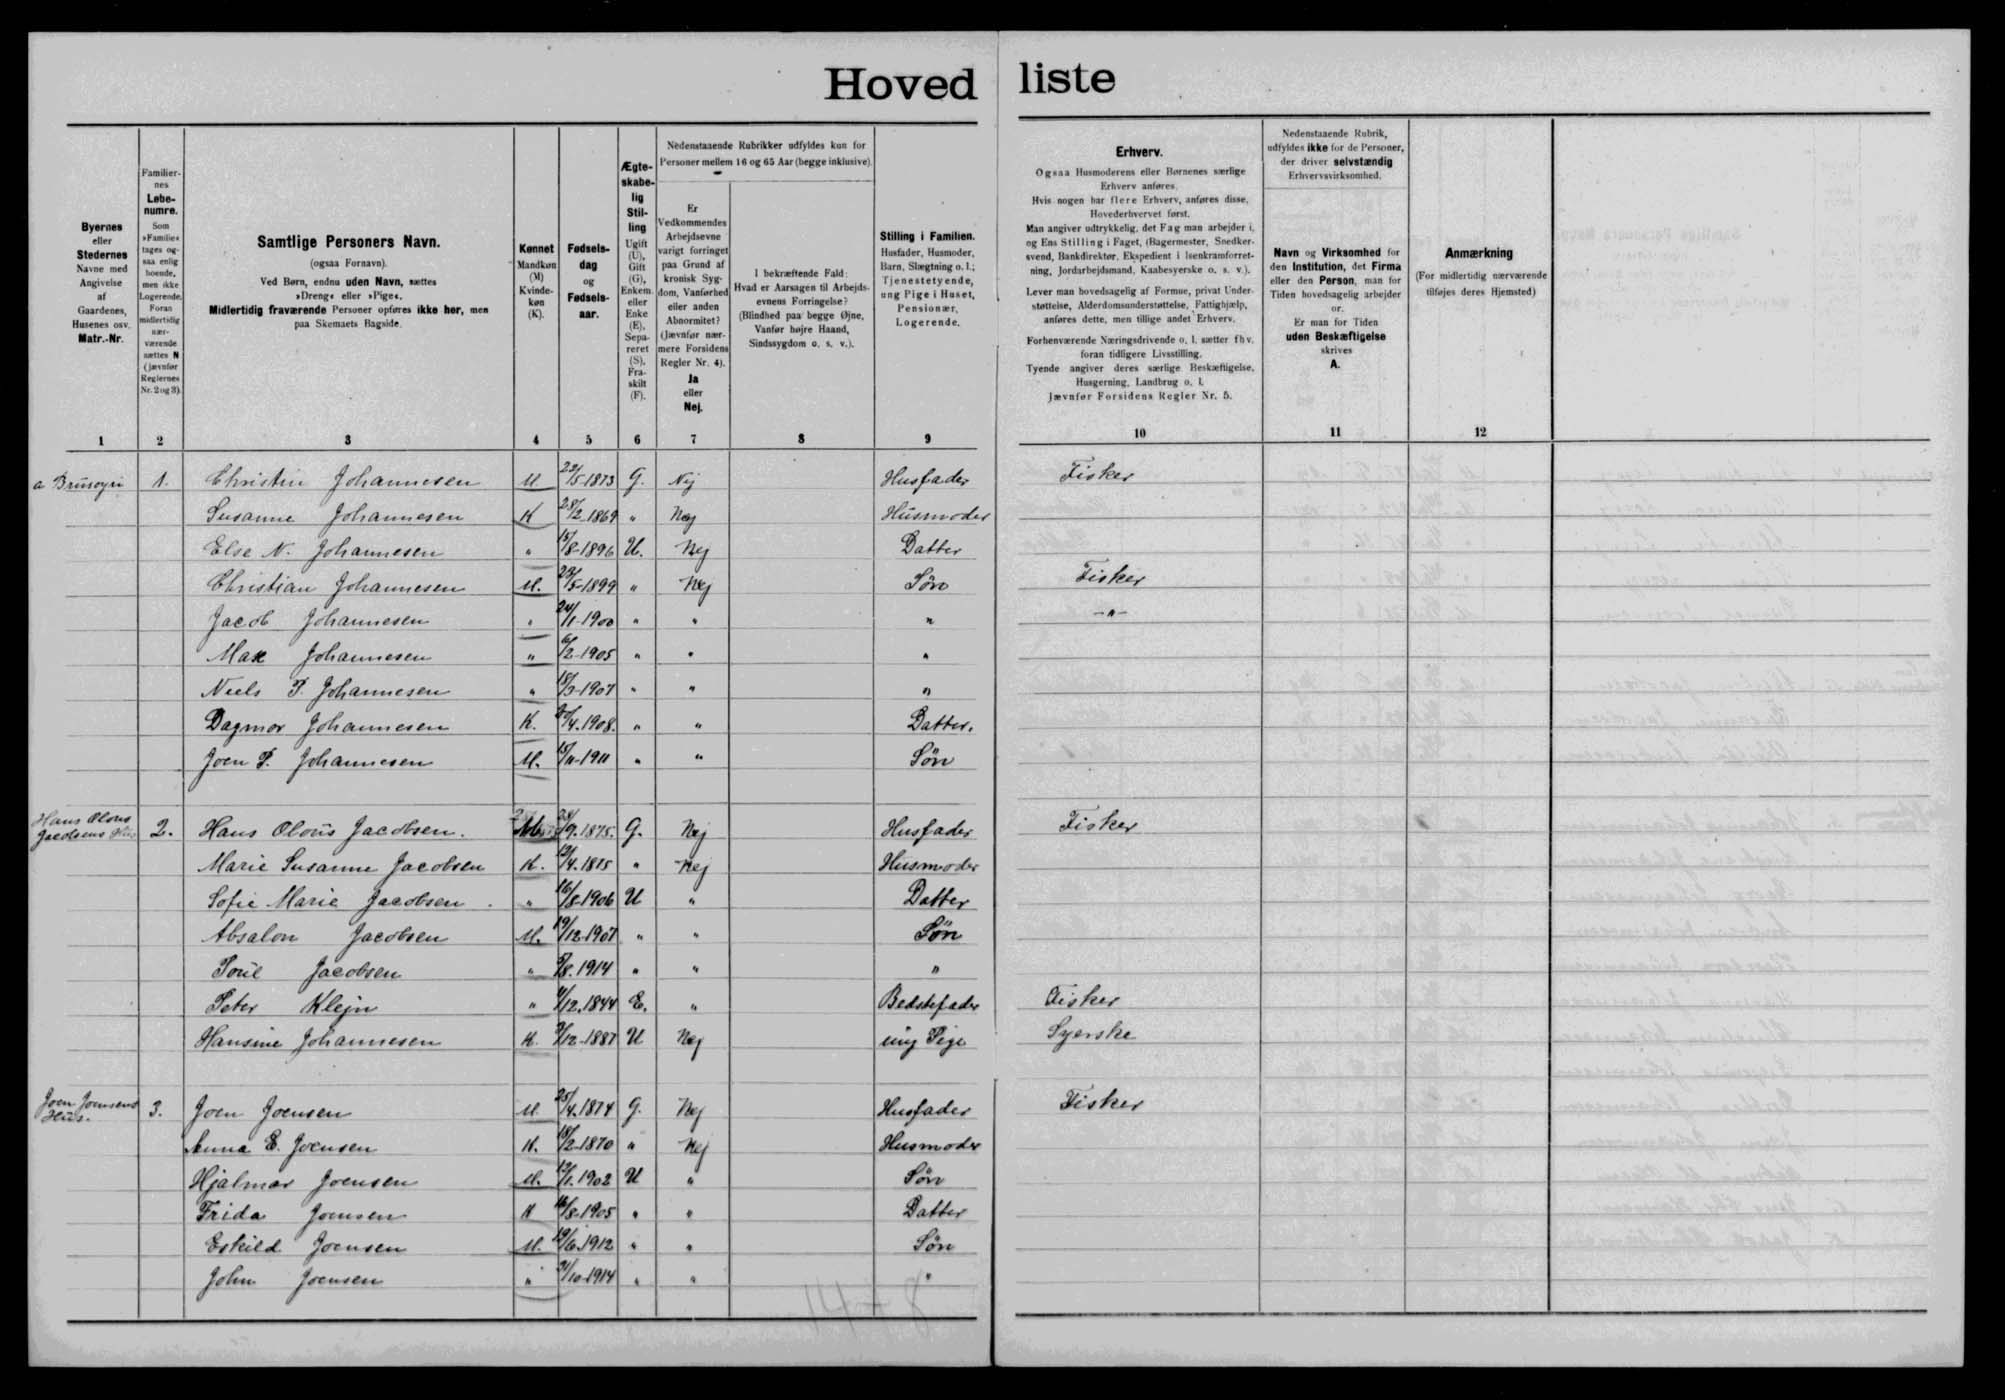 Hoved liste
Byernes
eller
Stedernes
Navne med
Angivelse
af
Gaardenes,
Husenes osv.
Matr.-Nr.
Familier-
nes
Løbe-
numre.
Som
»Familie«
tages og-
saa enlig
boende,
men ikke
Logerende.
Foran
midlertidig
nær-
værende
sættes N
(jævnfør
Reglernes
Nr. 2 og 3).
Samtlige Personers Navn.
(ogsaa Fornavn).
Ved Børn, endnu uden Navn, sættes
»Dreng« eller »Pige«.
Midlertidig fraværende Personer opføres ikke her, men
paa Skemaets Bagside.
Kønnet
Mandkøn
(M)
Kvinde-
køn
(K).
Fødsels-
dag
og
Fødsels-
aar.
Ægte-
skabe-
lig
Stil-
ling
Ugift
(U),
Gift
(G),
Enkem.
eller
Enke
(E),
Sepa-
reret
(S),
Fra-
skilt
(F).
Nedenstaaende Rubrikker udfyldes kun for
Personer mellem 16 og 65 Aar (begge inklusive).
Er
Vedkommendes
Arbejdsevne
varigt forringet
paa Grund af
kronisk Syg-
dom, Vanførhed
eller anden
Abnormitet?
(Jævnfør nær-
mere Forsidens
Regler Nr. 4).
Ja
eller
Nej.
I bekræftende Fald:
Hvad er Aarsagen til Arbejds-
evnens Forringelse?
(Blindhed paa begge Øjne,
Vanfør højre Haand,
Sindssygdom o. s. v.).
Stilling i Familien.
Husfader, Husmoder,
Barn, Slægtning o. l.;
Tjenestetyende,
ung Pige i Huset,
Pensionær,
Logerende.
Erhverv.
Ogsaa Husmoderens eller Børnenes særlige
Erhverv anføres.
Hvis nogen har flere Erhverv, anføres disse,
Hovederhvervet først.
Man angiver udtrykkelig, det Fag man arbejder i,
og Ens Stilling i Faget, (Bagermester, Snedker-
svend, Bankdirektør, Ekspedient i Isenkramforret-
ning, Jordarbejdsmand, Kaabesyerske o. s. v.).
Lever man hovedsagelig af Formue, privat Under-
støttelse, Alderdomsunderstøttelse, Fattighjælp,
anføres dette, men tillige andet Erhverv.
Forhenværende Næringsdrivende o. l. sætter fhv.
foran tidligere Livsstilling.
Tyende angiver deres særlige Beskæftigelse,
Husgerning, Landbrug o. l.
Jævnfør Forsidens Regler Nr. 5.
Nedenstaaende Rubrik,
udfyldes ikke for de Personer,
der driver selvstændig
Erhvervsvirksomhed.
Navn og Virksomhed for
den Institution, det Firma
eller den Person, man for
Tiden hovedsagelig arbejder
for.
Er man for Tiden
uden Beskæftigelse
skrives
A.
Anmærkning
(For midlertidig nærværende
tilføjes deres Hjemsted)
1 2 3 4 5 6 7 8 9 10 11 12
a 1. Christin Johannesen M 5-1873 G. Nej Husfader Fisker
Susanne Johannesen K 28/2 1869 " Nej Husmoder
Else N. Johannesen " 15/8-1896 U. Nej Datter
Christian Johannesen M. 5-1899 " Nej Søn Fisker
Jacob Johannesen " 24/1-1900 " " " -"-
Max Johannesen " 6/2-1905 " " "
Niels P. Johannesen " 1907 " " "
Dagmar Johannesen K. 4.1908. " " Datter.
Joen P. Johannesen M. 15/11-1911 " " Søn
Hans Olous
Jacobsens Hus 2. Hans Olous Jacobsen. M 9.1875. G. Nej Husfader Fisker
Marie Susanne Jacobsen K. 4.1875 " Nej Husmoder
Sofie Marie Jacobsen. " 16/8-1906 U " Datter
Absalon Jacobsen M. 19/12-1907 " " Søn
Poul Jacobsen " 8.1914 " " "
Peter Klejn " 12.1844 E. " Bedstefader Fisker
Hansine Johannesen K. 12-1887 U Nej ung Pige Syerske
Joen Joensens
Hus. 3. Joen Joensen M. 25/4.1874 G. Nej Husfader Fisker
Anna E. Joensen K. 18/2-1870 " Nej Husmoder
Hjalmar Joensen M. 1.1902 U " Søn
Frida Joensen K 16/8-1905 " " Datter
Eskild Joensen M. 19/6.1912 " " Søn
John Joensen " 10-1914 " " "
14 + 8